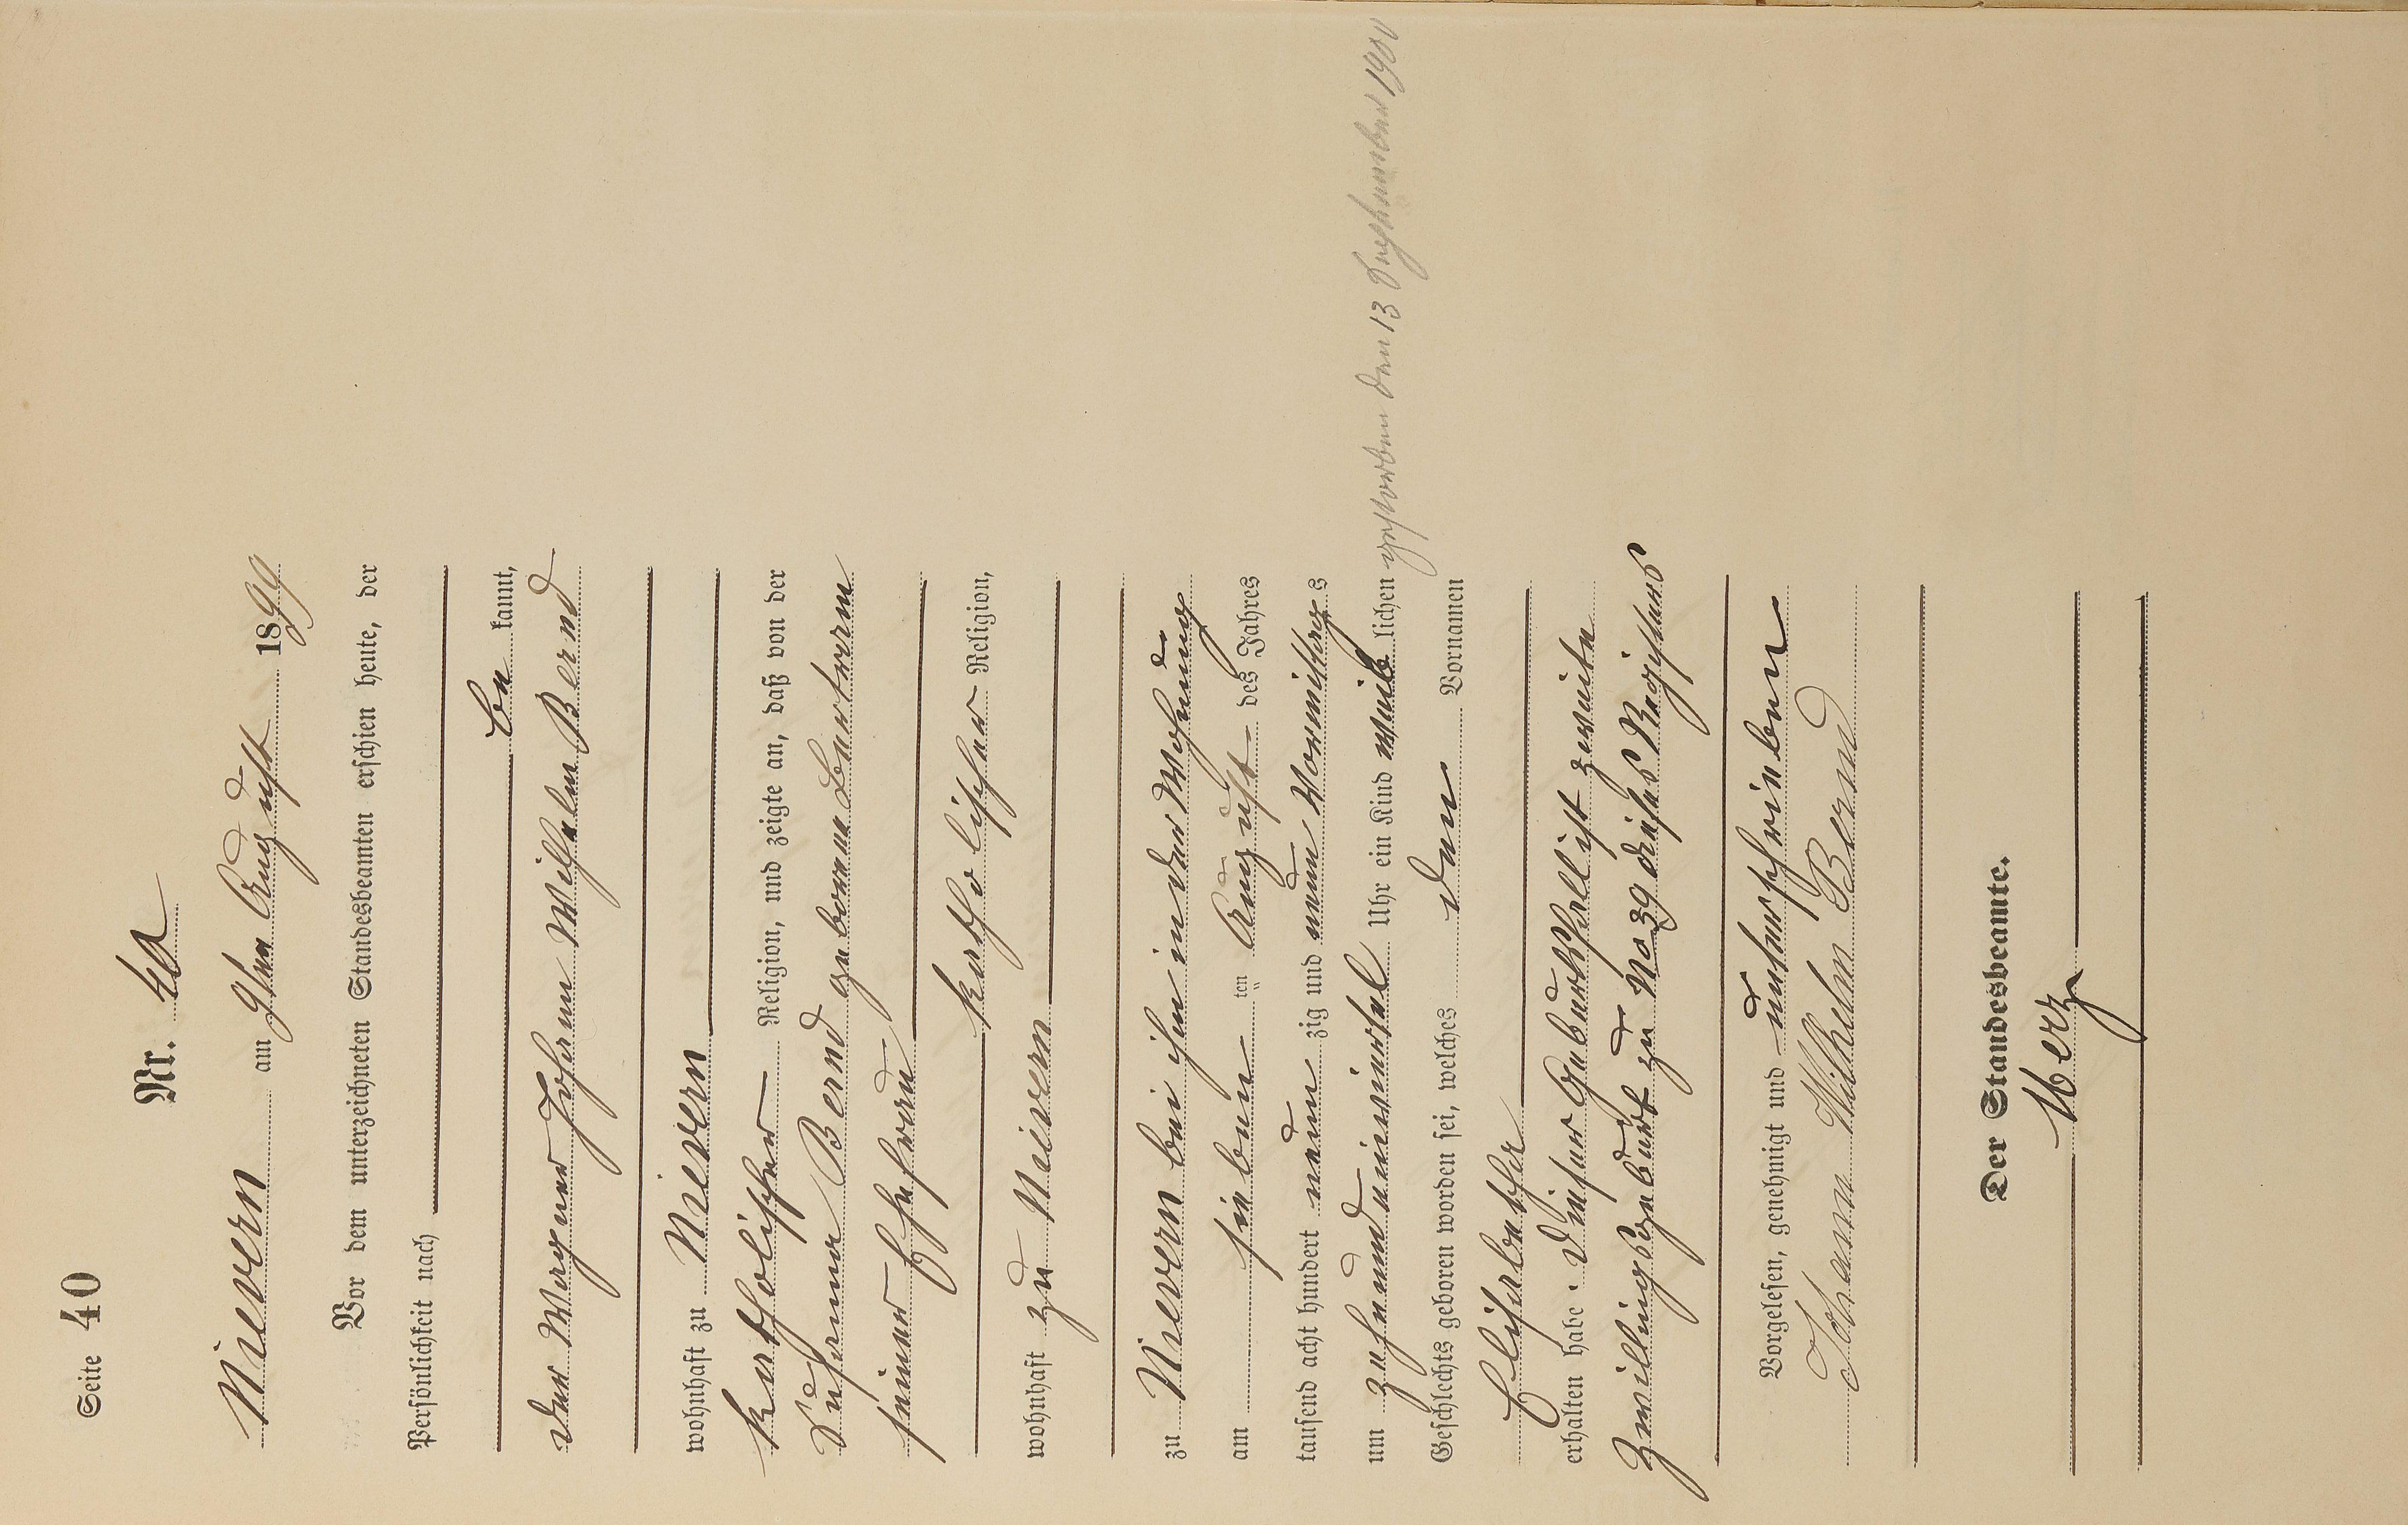 Seite 40
Nr. 40
Nievern am 9ten August 1899
Vor dem unterzeichneten Standesbeamten erschien heute, der
Persönlichkeit nach
be kannt,
der Wagner Johann Wilhelm Bernd
wohnhaft zu Nievern
katholischer Religion, und zeigte an, daß von der
Bernd geborene
seiner Ehefrau
katholischer Religion,
wohnhaft zu Nievern
zu Nievern bei ihm in der Wohnung
am sieben ten August des Jahres
tausend acht hundert neun zig und neun Vormittags
um zehneundeinviertel Uhr ein Kind weib lichen gestorben den 13 September 1900
Geschlechts geboren worden sei, welches den Vornamen
Elisabetha
erhalten habe. Dieser Geburtsfall ist zweite
Zwillingsgeburt zu No 39 dieses Registers
Vorgelesen, genehmigt und unterschrieben
Johann Wilhelm Bernd
Der Standesbeamte.
Merz